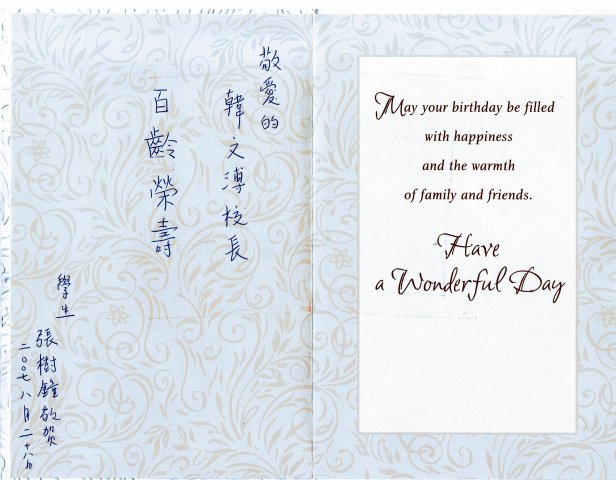 敬愛的
韓文溥校長
百齡榮壽
學生
張樹鐘敬賀
二〇〇七八月二十八日
May your birthday be filled
with happiness
and the warmth
of family and friends.
Have
a Wonderful Day